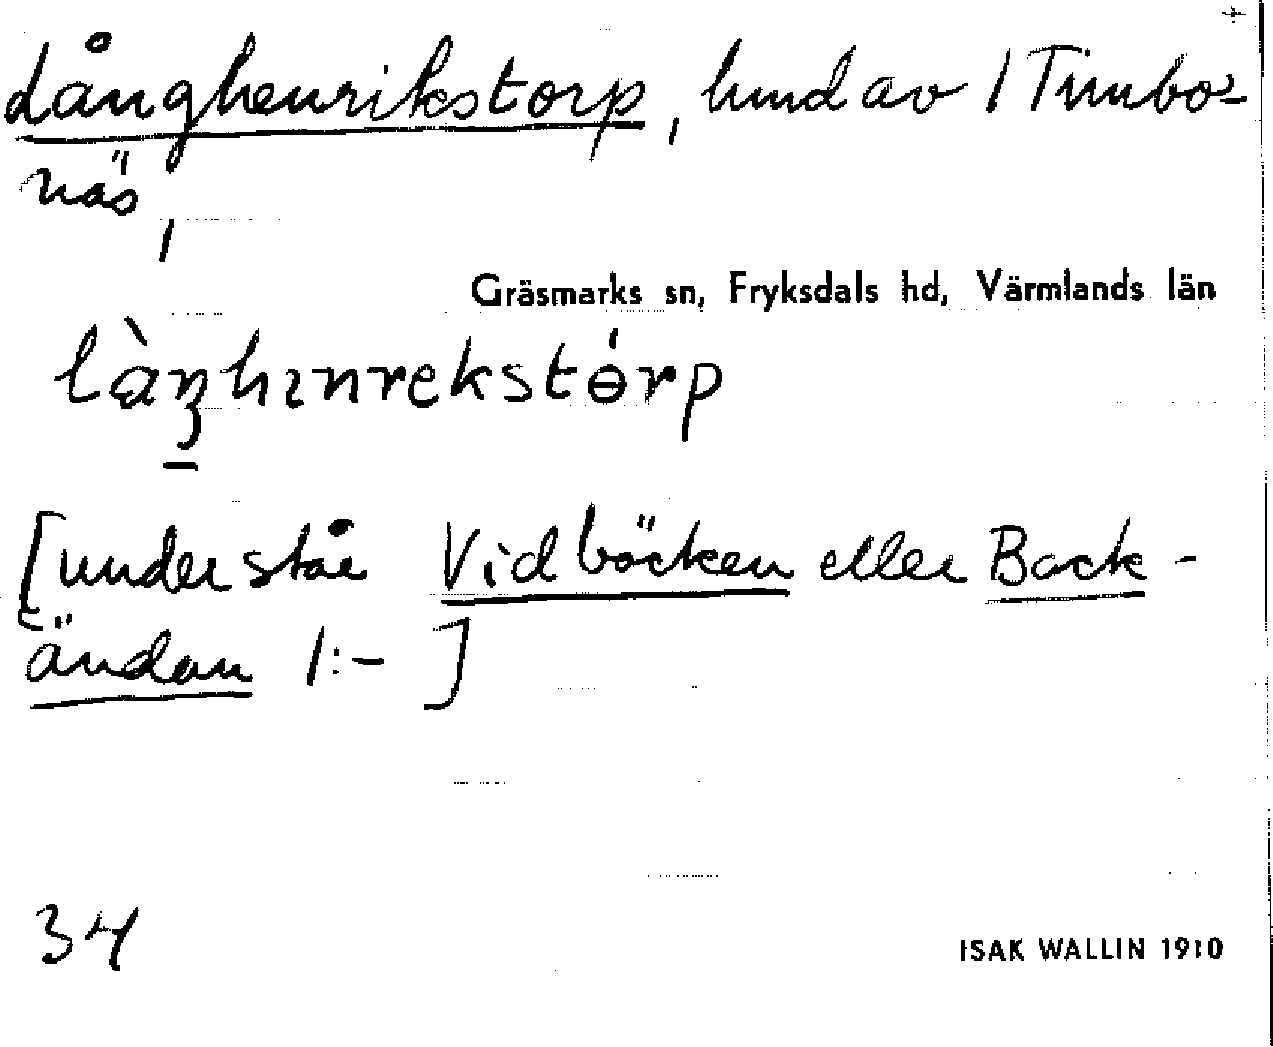 Långhenrikstorp, hmd av 1 Timbo-
näs,
Gräsmarks sn, Fryksdals hd, Värmlands län
làŋhınrekstɵ́rp
[under står Vid bäcken eller Back-
ändan 1:- ]
34
ISAK WALLIN 1910